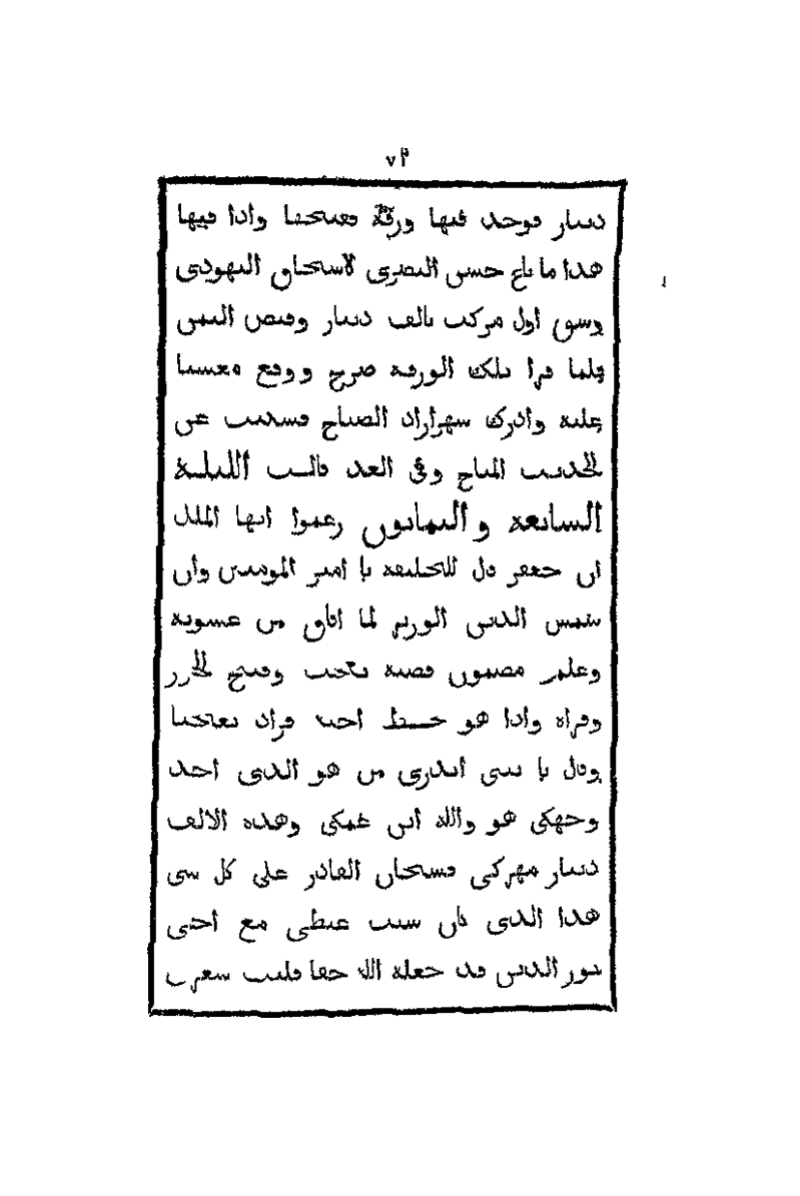 ٧٢
دينار فوجد فيها ورقة ففتحها واذا فيها
هذا ما باع حسن البصري لاسحاق اليهودي
وسق اول مركب بالف دينار وقبض الثمن
فلما قرا تلك الورقة صرخ ووقع مغشيا
عليه وادرك شهرازاد الصباح فسكتت عن
الحديث المباح وفي الغد قالت الليلة
السابعة والثمانون زعموا ايها الملك
ان جعفر قال للخليفة يا امير المومنين وان
شمس الدين الوزير لما افاق من غشوته
وعلم مضمون قصته تعجب وفتح الحرز
وقراه واذا هو خط اخيه فزاد تعجبا
وقال يا بنتي اتدري من هو الذي اخذ
وجهكي هو والله ابن عمكي وهذه الالف
دينار مهركي فسبحان القادر على كل شي
هذا الذي كان سبب غيظي مع اخي
نور الدين قد جعله الله حقا فليت شعري